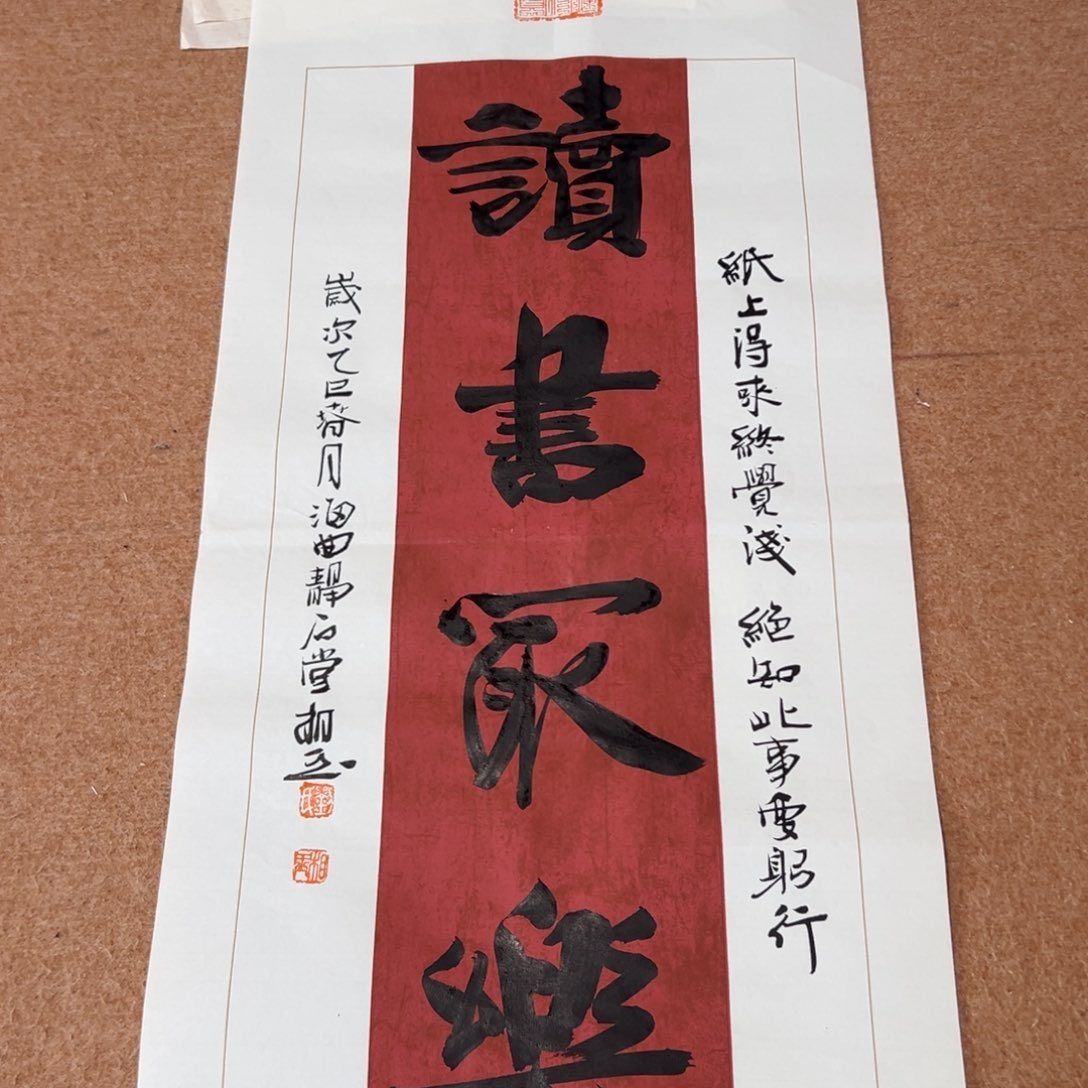 紙上得來終覺淺 絕知此事要躬行
讀書冣樂
歲次乙巳春月海曲靜石堂相玉